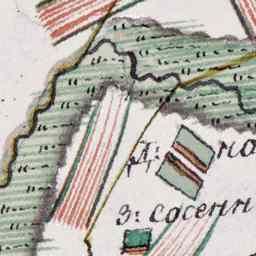 Д: по
З: сосенн